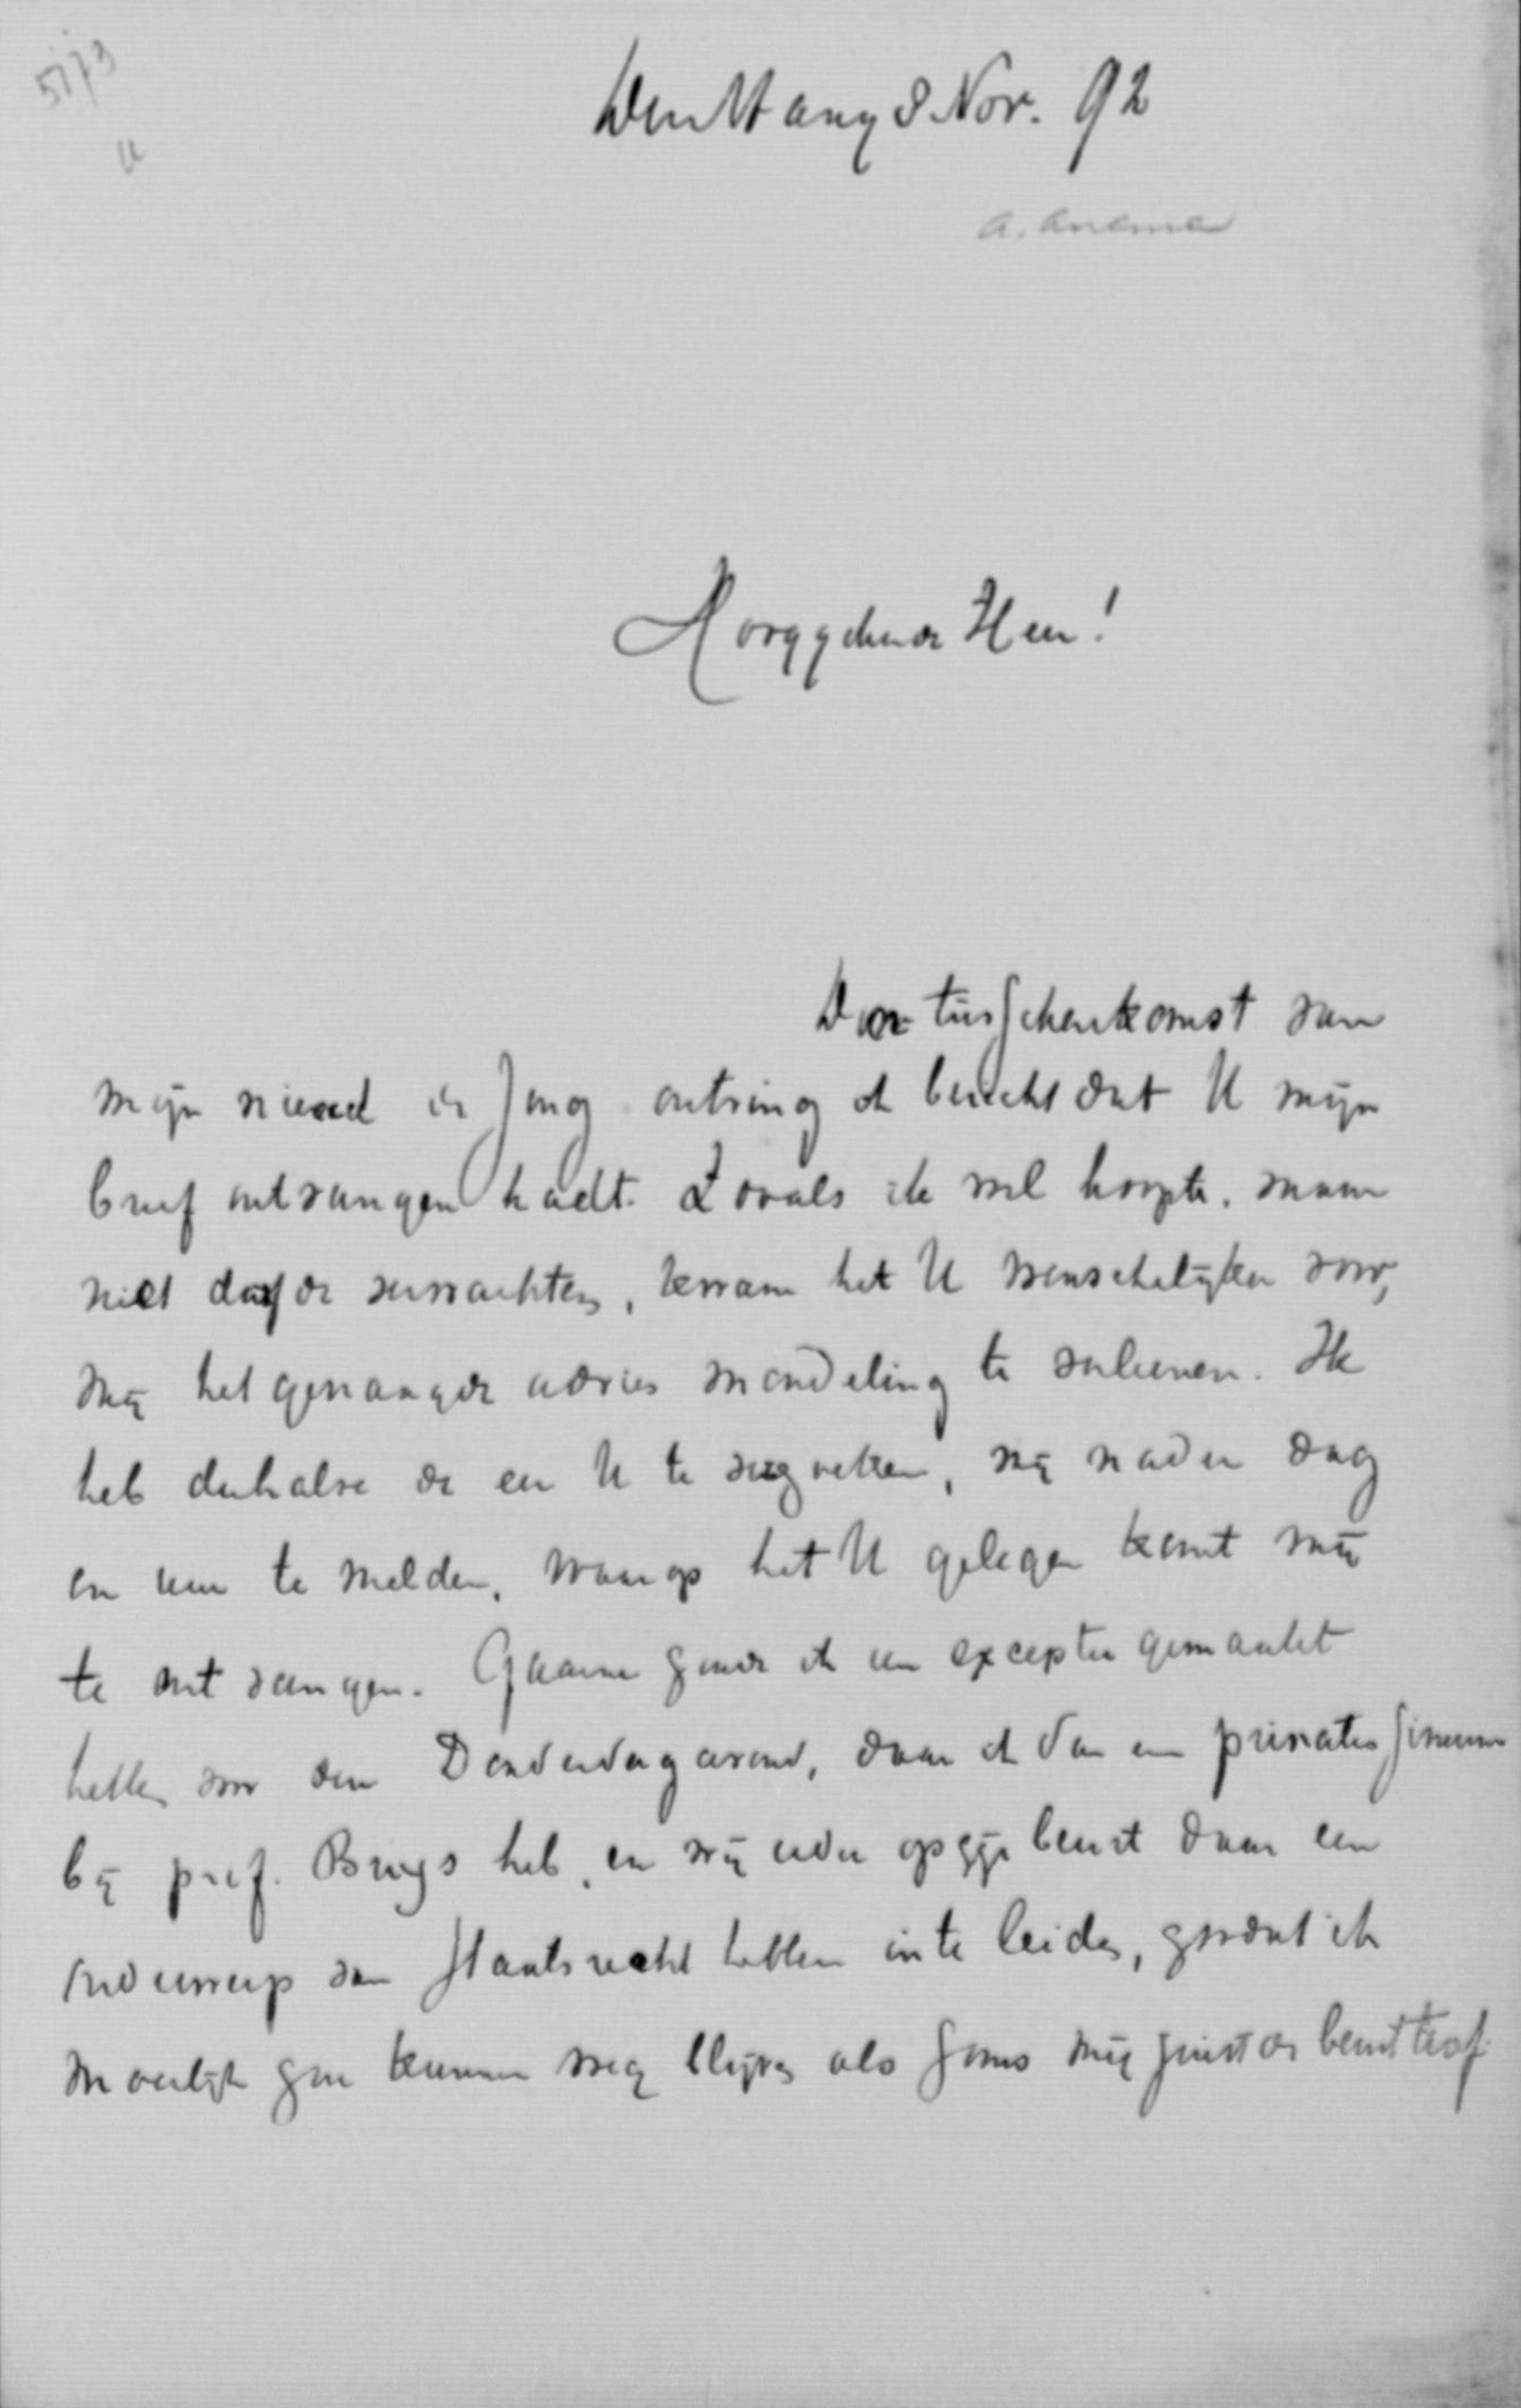 5173
Den Haag 8 Nov. 92
A. Anema
Hooggeachte Heer!
Door tusschenkomst van
mijn vriend de Jong ontving ik bericht dat U mijn
brief ontvangen hadt. Zooals ik wel hoopte, maar
niet dorfde verwachten, kwam het U wenschelijker voor,
mij het gevraagde advies mondeling te verleenen. Ik
heb derhalve de eer U te verzoeken, mij nader dag
en uur te melden, waarop het U gelegen komt mij
te ontvangen. Gaarne zoude ik een exceptie gemaakt
hebben voor den Donderdagavond, daar ik dan een privatissimum
bij prof. Buys heb, en wij ieder op zijn beurt daar een
onderwerp van Staatsrecht hebben in te leiden, zoodat ik
moeilijk zou kunnen weg blijven als soms mij juist de beurt trof.